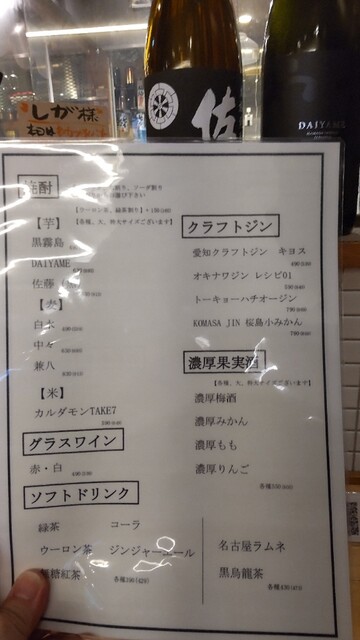 しが様
佐
DAIYAME
焼酎
【芋】
黒霧島
DAIYAME
佐藤
【麦】
白水
中々
兼八
【米】
カルダモンTAKE7
グラスワイン
赤・白
クラフトジン
愛知クラフトジン キヨス
オキナワジン レシピ01
トーキョーハチオージン
KOMASA JIN 桜島小みかん
濃厚果実酒
【各種、大、特大サイズございます】
濃厚梅酒
濃厚みかん
濃厚もも
濃厚りんご
ソフトドリンク
緑茶 コーラ
ウーロン茶 ジンジャーエール
糖紅茶
名古屋ラムネ
黒烏龍茶